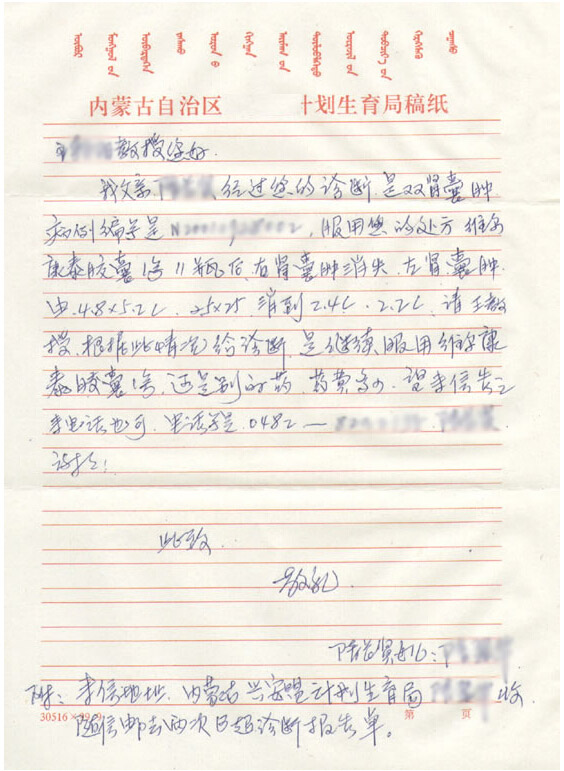 内蒙古自治区 计划生育局稿纸
教授您好.
我父亲 经过您的诊断是双肾囊肿
病例编号是 服用您的处方维尔
康泰胶囊1号11瓶后,右肾囊肿消失,左肾囊肿
由4.8×5.2L、25×25消到2.4L、2.2L,请王教
授,根据此情况给诊断,是继续服用维尔康
泰胶囊1号,还是别的药,药费多少,望来信告之
来电话也可,电话号是,0482—
谢谢!
此致
敬礼
附:来信地址,内蒙古兴安盟计划生育局 收
30516 第 页
随信邮去两次B超诊断报告单。